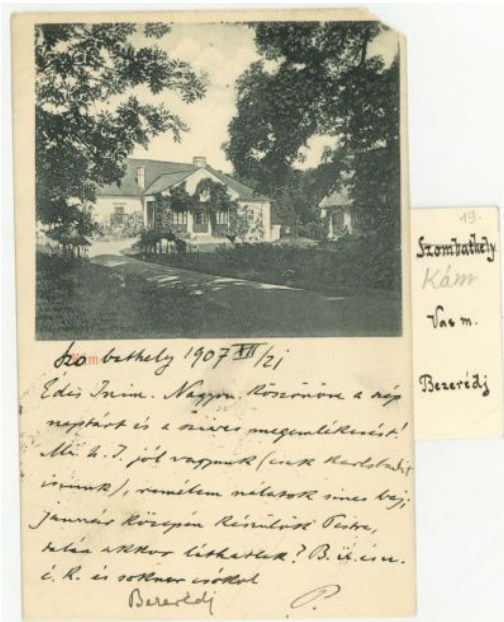 Kám
Szombathely 1907 XII/21
Édes Inim. Nagyon köszönöm a szép
naptárt és a szives megemlékezést!
Mi h. I. jól vagyunk (csak Karlsbadit
iszunk), remélem nálatok sincs baj,
január közepén készülünk Pestre,
talán akkor láthatlak? B. ü. és
é. K. és sokszor csókol
Bezerédj P.
19.
Szombathely
Kám
Vas m.
Bezerédj